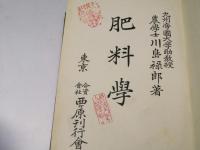 九州帝國大學助教授
農學士川島祿郎著
肥料學
東京
合資會社
栗原刊行會